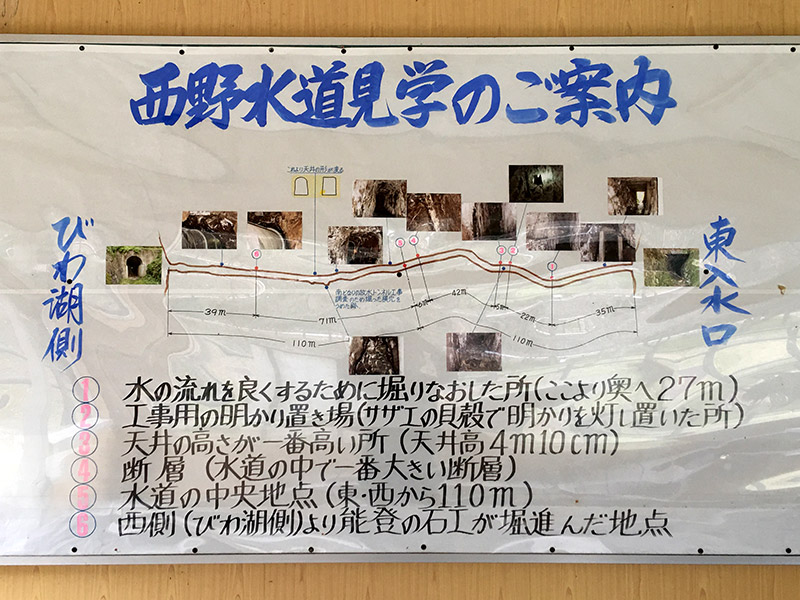 西野水道見学のご案内
これより天井の形が変る
びわ湖側
東入水口
6
5
4
3
2
1
39m
71m
6m
42m
5m
22m
35m
110m
110m
① 水の流れを良くするために堀りなおした所(ここより奥へ27m)
② 工事用の明かり置き場(サザエの貝殻で明かりを灯し置いた所)
③ 天井の高さが一番高い所(天井高4m10cm)
④ 断層(水道の中で一番大きい断層)
⑤ 水道の中央地点(東・西から110m)
⑥ 西側(びわ湖側)より能登の石工が堀進んだ地点